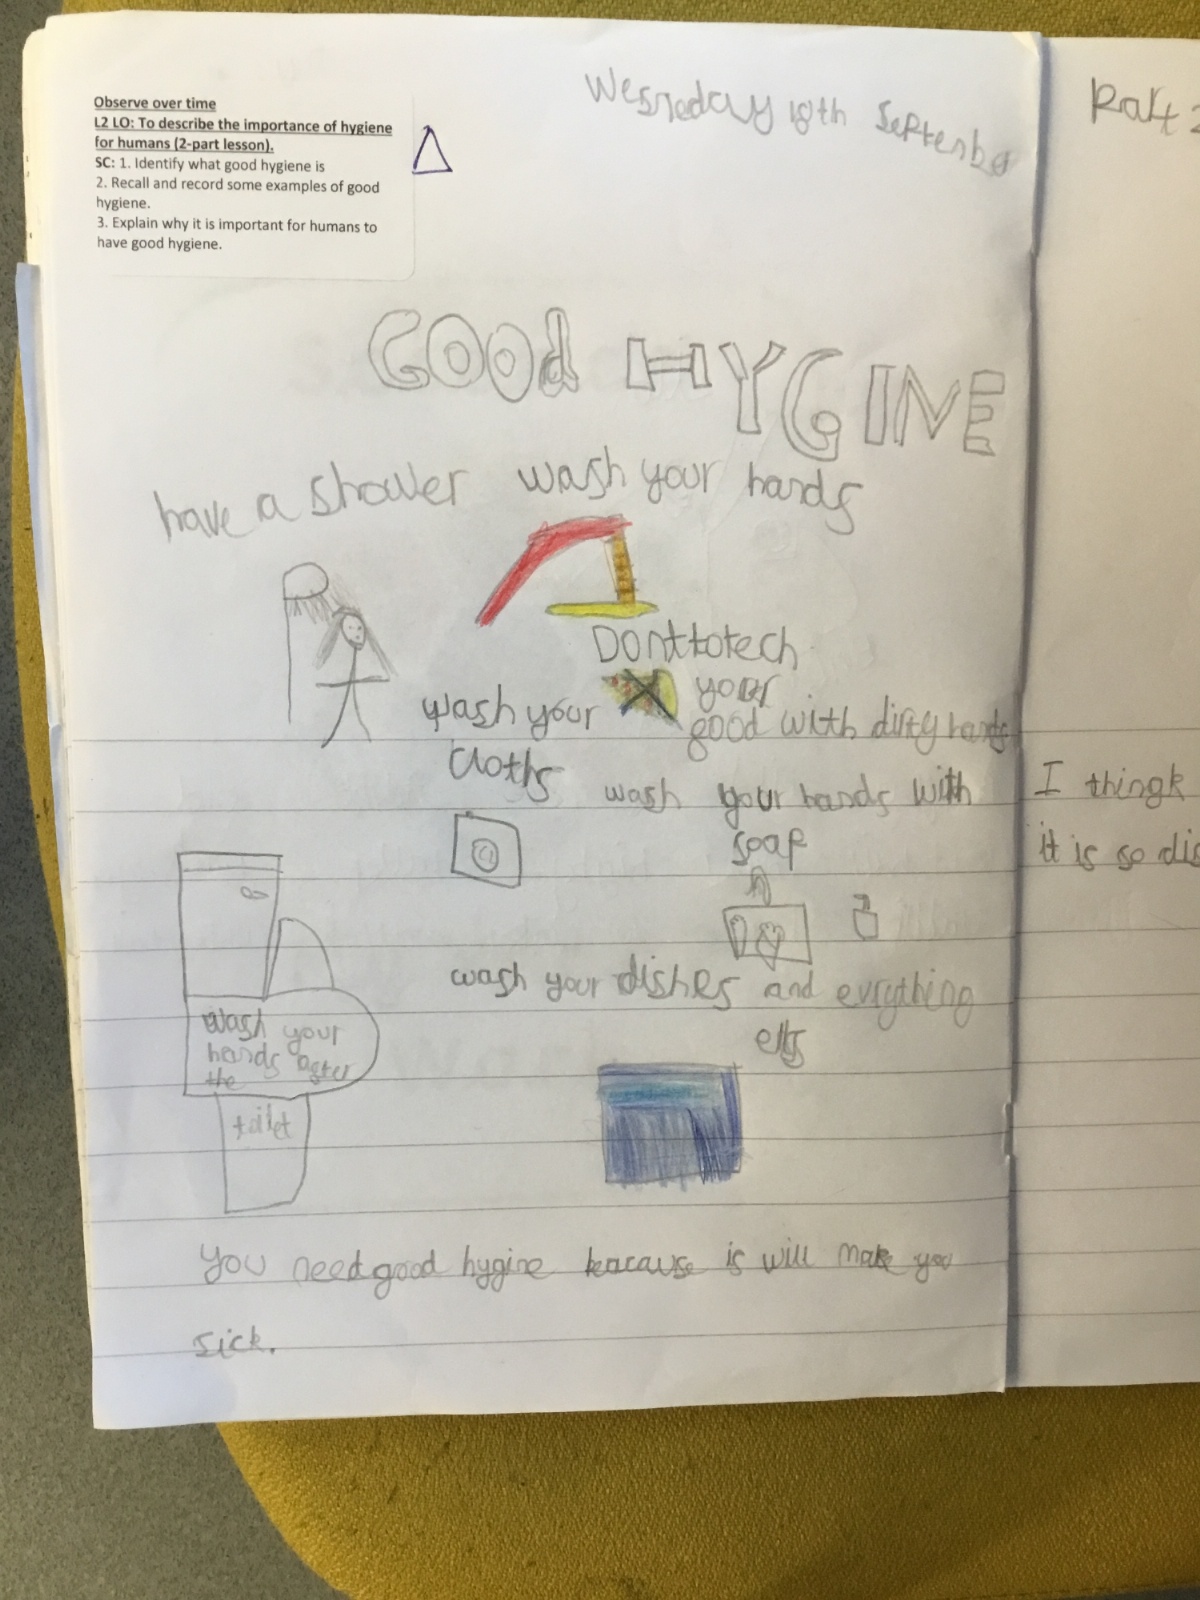 Observe over time
L2 LO: To describe the importance of hygiene
for humans (2-part lesson).
SC: 1. Identify what good hygiene is
2. Recall and record some examples of good
hygiene.
3. Explain why it is important for humans to
have good hygiene.
Wesneday 18th September
GOOd HYGINE
have a shower wash your hands
Dont totech
your
good with dirty hands
wash your
cloths
wash your hands with
soap
wash your dishes and evrything
ells
wash your
hands after
the
toilet
You need good hygine beacause is will make you
sick.
Part 2
I thingk
it is so dis